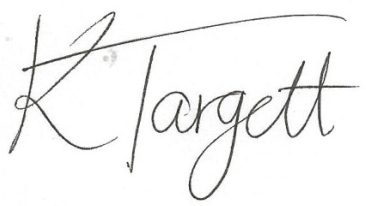 K Targett